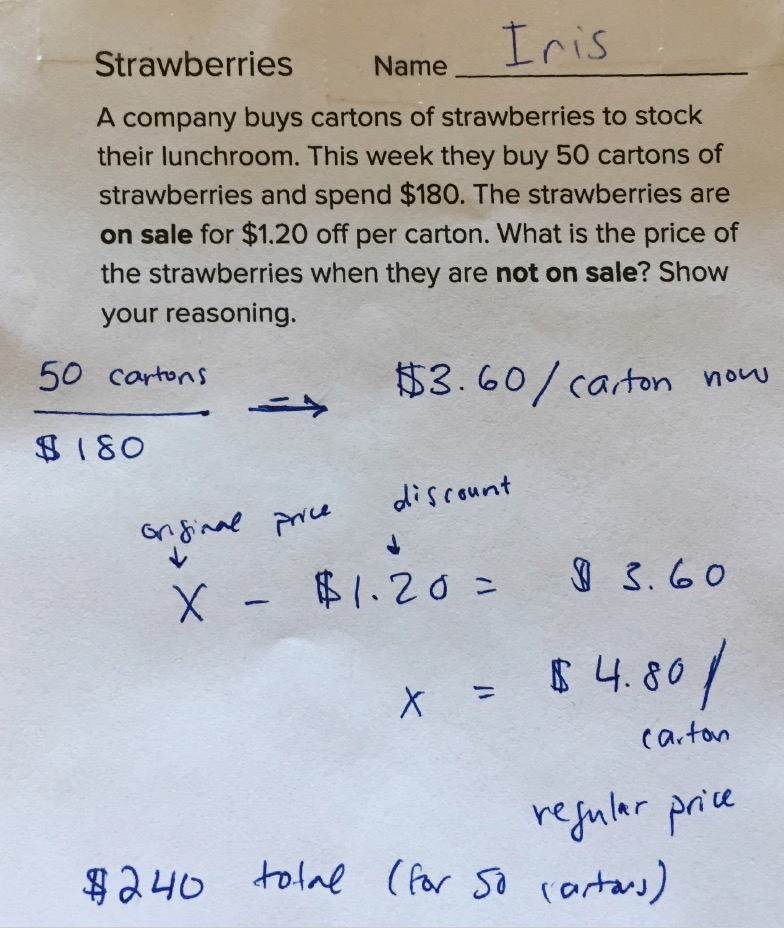 Strawberries Name Iris
A company buys cartons of strawberries to stock
their lunchroom. This week they buy 50 cartons of
strawberries and spend $180. The strawberries are
on sale for $1.20 off per carton. What is the price of
the strawberries when they are not on sale? Show
your reasoning.
50 cartons
$180
→ $3.60/carton now
original price discount
↓ ↓
X - $1.20 = $3.60
x = $4.80/
carton
regular price
$240 total (for 50 cartons)